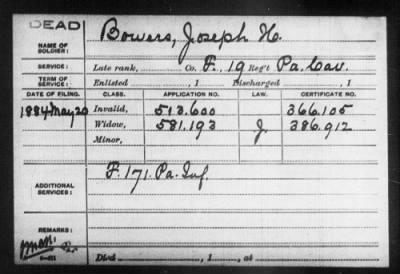 DEAD
NAME OF SOLDIER: Bowers, Joseph H.
SERVICE: Late rank, Co. F, 19 Reg't Pa. Cav.
TERM OF SERVICE: Enlisted , 1 Discharged , 1
DATE OF FILING. CLASS. APPLICATION NO. LAW. CERTIFICATE NO.
1884 May 20 Invalid, 513.600 366.105
Widow, 581.193 J. 386.912
Minor,
ADDITIONAL SERVICES: F. 171. Pa. Inf.
REMARKS:
Died , 1 , at